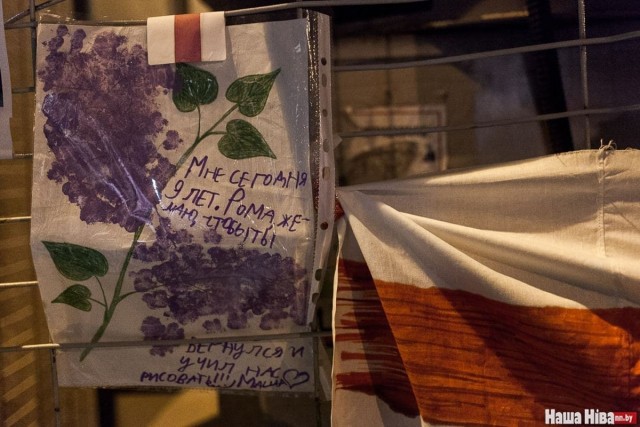 Мне сегодня
9 лет. Рома же-
лаю, чтобы ты
вернулся и
учил нас
рисовать!!! Миша♡
Наша Ніва nn.by